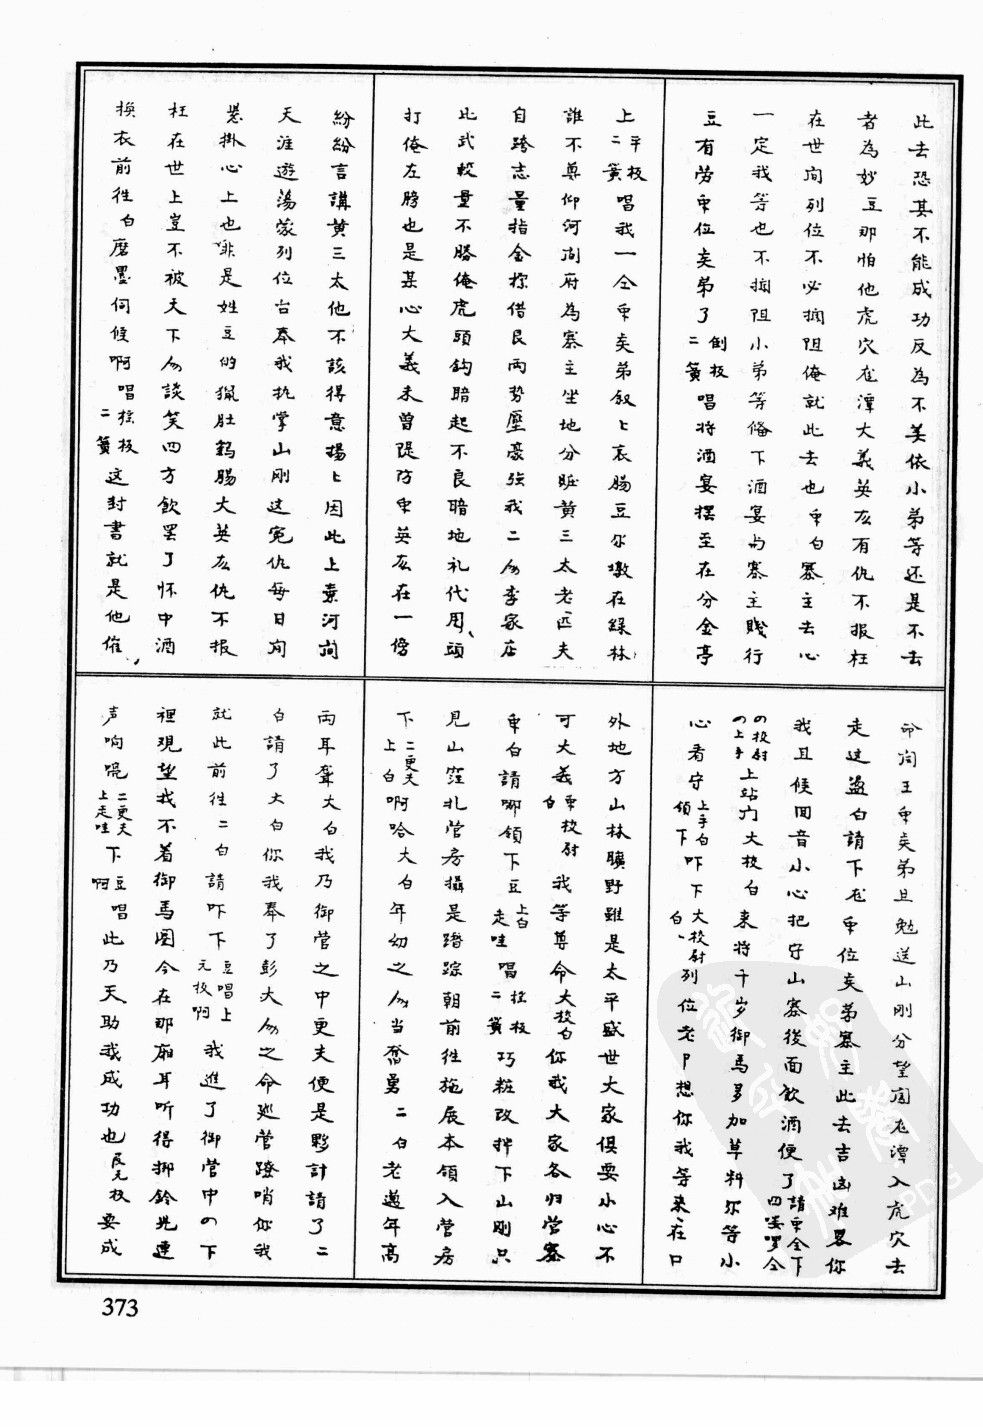 此去恐其不能成功反為不美依小弟等还是不去
者為妙豆那怕他虎穴龙潭大義英雄有仇不报枉
在世间列位不必拥阻俺就此去也众白寨主去心
一定我等也不拥阻小弟等俻下酒宴与寨主贱行
豆有劳众位矣弟了二簧倒板唱将酒宴摆至在分金亭
上二簧平板唱我一仝众矣弟叙上衷腸豆尔墩在緑林
誰不尊仰河间府為寨主坐地分赃黄三太老匹夫
自跨志量指金標借艮両势壓豪强我二人李家店
比武較量不勝俺虎頭鈎暗起不良暗地礼代用、頭
打俺左膀也是某心大義未曾隄防众英雄在一傍
紛紛言講黄三太他不該得意揚上因此上棄河间
天涯遊蕩蒙列位台奉我执掌山刚这冤仇每日间
掛心上也非是姓豆的狼肚鸡腸大英雄仇不报
枉在世上豈不被天下人談笑四方飲罢了怀中酒
换衣前徃白磨墨伺候啊唱二簧摇板这封書就是他催、
命间王众矣弟且勉送山刚分望闯龙潭入虎穴去
走这盗白請下龙众位矣弟寨主此去吉凶难畧你
我且候囬音小心把守山寨後面飲酒便了請众仝下四喽啰仝
の校尉の上手上站门大校白来将千岁御馬多加草料尔等小
心看守上手白领下吓下大校尉白、列位老卩想你我等来在口
外地方山林曠野雖是太平盛世大家俱要小心不
可大義众校尉白我等尊命大校白你我大家各归营寨
众白請哪领下豆上白走哇唱二簧摇板巧粧改拌下山刚只
見山窪扎营房攝足踏踪朝前徃施展本領入营房
下二更夫上白啊哈大白年幼之人当奮勇二白老邁年高
両耳聾大白我乃御营之中更夫便是夥計請了二
白請了大白你我奉了彭大人之命廵营蹽哨你我
就此前徃二白請吓下豆唱上元板啊我進了御营中の下
裡現望我不着御馬圏今在那廂耳听得挷鈴光連
声响咣二更夫上走哇下豆啊唱此乃天助我成功也元板要成
373